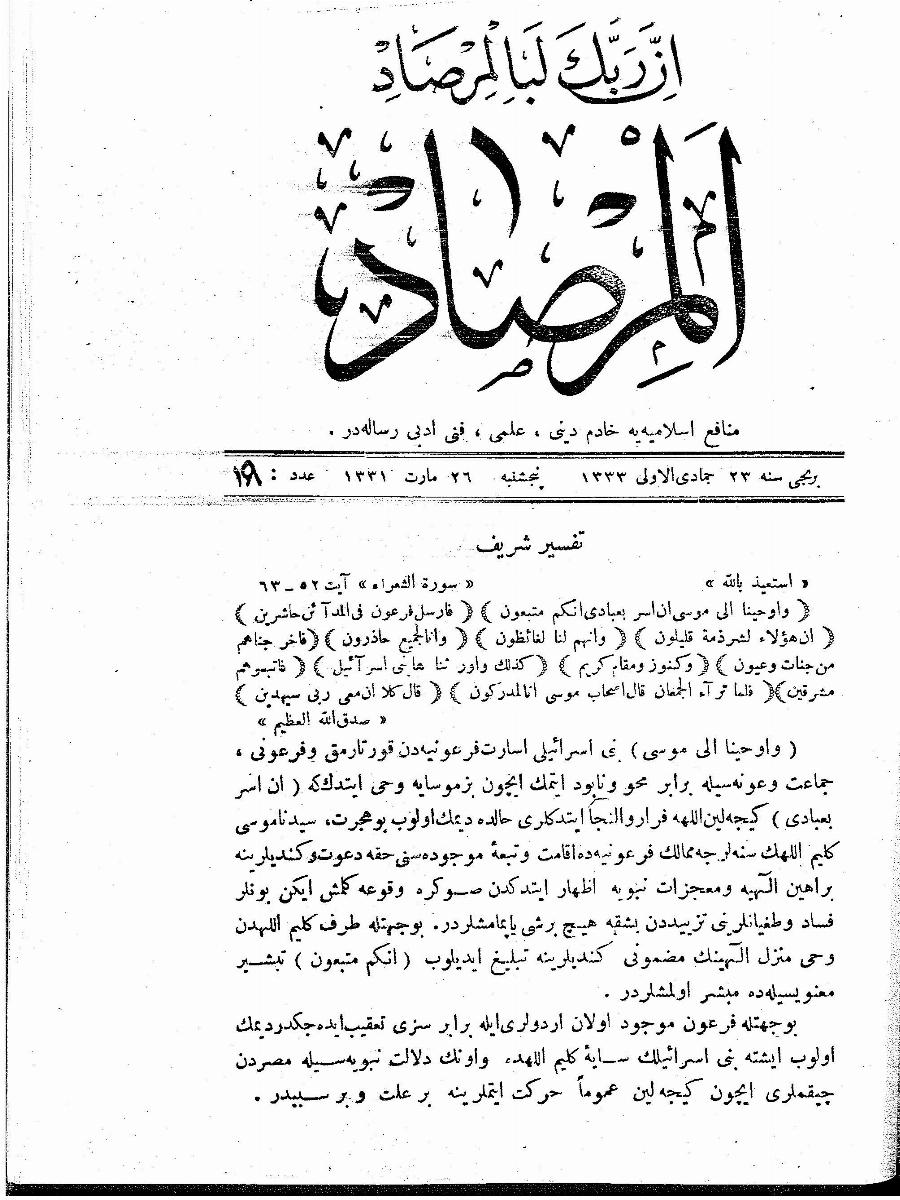 اِنَّ رَبَّكَ لَبِالْمِرْصَادِ
اَلْمِرْصَادْ
منافع اسلاميه‌يه خادم دينى ، علمى ، فنى ادبى رساله‌در .
برنجى سنه ٢٣ جمادى‌الاولى ١٣٣٣ پنجشنبه ٢٦ مارت ١٣٣١ عدد : ١٩
تفسير شريف
« استعيذ بالله » « سورة الشعراء » آيت ٥٢ ــ ٦٣
﴿ واوحينا الى موسى ان اسر بعبادى انكم متبعون ﴾ ﴿ فارسل فرعون فى المدآئن حاشرين ﴾
﴿ ان هؤلاء لشرذمة قليلون ﴾ ﴿ وانهم لنا لغائظون ﴾ ﴿ وانا لجميع حاذرون ﴾ ﴿ فاخرجناهم
من جنات وعيون ﴾ ﴿ وكنوز ومقام كريم ﴾ ﴿ كذلك واورثناها بنى اسرآئيل ﴾ ﴿ فاتبعوهم
مشرقين ﴾ ﴿ فلما ترآء الجمعان قال اصحاب موسى انا لمدركون ﴾ ﴿ قال كلا ان معى ربى سيهدين ﴾
« صدق الله العظيم »
( واوحينا الى موسى ) بنى اسرائيلى اسارت فرعونيه‌دن قورتارمق وفرعونى ،
جماعت وعونه‌سيله برابر محو ونابود ايتمك ايچون بز موسايه وحى ايتدك‌كه ( ان اسر
بعبادى ) كيجه‌لين اللهه فرار والتجأ ايتدكلرى حالده ديمك اولوب بو هجرت، سيدنا موسى
كليم اللهك سنه‌لرجه ممالك فرعونيه‌ده اقامت وتبعۀ موجوده‌سنى حقه دعوت وكنديلرينه
براهين الٓهيه ومعجزات نبويه اظهار ايتدكدن صوكره وقوعه كلمش ايكن بونلر
فساد وطغيانلرينى تزييددن بشقه هيچ برشى ياپمامشلردر. بوجهتله طرف كليم اللهدن
وحى منزل الٓهينك مضمونى كنديلرينه تبليغ ايديلوب ( انكم متبعون ) تبشير
معنويسيله‌ده مبشر اولمشلردر .
بوجهتله فرعون موجود اولان اردولرى ايله برابر سزى تعقيب ايده‌جكدر ديمك
اولوب ايشته بنى اسرائيلك سايۀ كليم اللهده واونك دلالت نبويه‌سيله مصردن
چيقملرى ايچون كيجه‌لين عموماً حركت ايتملرينه بر علت و بر سببدر .